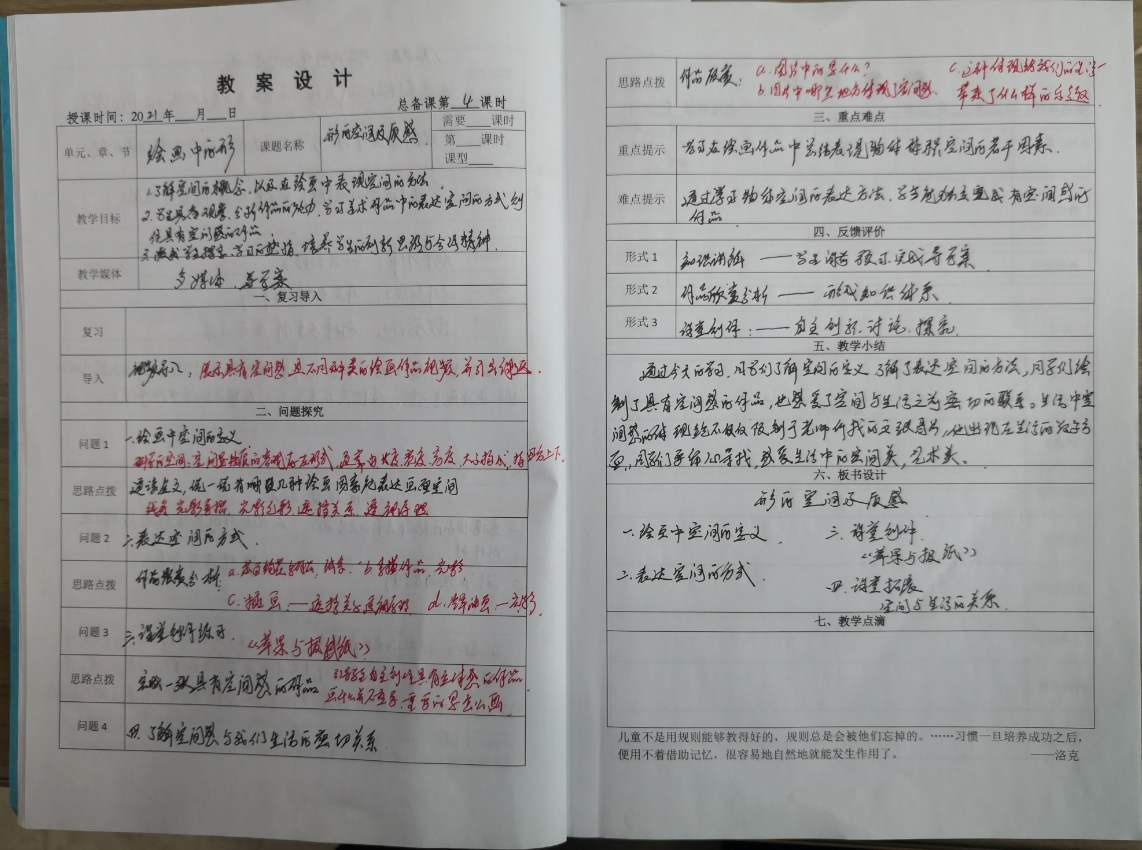 教 案 设 计
授课时间：2021年___月___日 总备课第 4 课时
单元、章、节 绘画中的形 课题名称 形的空间及质感 需要___课时
第___课时
课型___
教学目标 1.了解空间的概念，以及在绘画中表现空间的方法.
2.学生具有观察、分析作品的能力，学习美术作品中的表达空间的方式创
作具有空间感的作品
3.学习的 培养学生的创新思路与合作精神.
教学媒体 多媒体、导学案
一、复习导入
复习
导入 视频导入：展示具有空间感且不同种类的绘画作品视频，并引出课题.
二、问题探究
问题1 一.绘画中空间的定义
空间是物质的 存在形式，通常由长度、宽度、高度、大小 上下.
思路点拨 通读定义，说一说有哪几种绘画因素能表达画面空间
光影 遮挡关系 透视原理
问题2 二.表达空间的方式.
思路点拨 作品欣赏分析. a. b.素描作品 光影
c. 画——遮挡关系透视原理 d. 油画—色彩
问题3 三.课堂创作练习. 《苹果与报纸》
思路点拨 完成一张具有空间感的作品 自主创作具有立体感的作品
问题4 四.了解空间感与我们生活的密切关系
思路点拨 作品欣赏：a.图片中的是什么？ c.这种体现给我们的生活
b.图片中哪些地方体现了空间感. 带来了什么样的乐趣
三、重点难点
重点提示 学习在绘画作品中总结表现物体体积空间的若干因素.
难点提示 通过学习物体空间的表达方法，学生能独立完成有空间感的
作品
四、反馈评价
形式1 知识讲解 ——学生课前预习完成导学案
形式2 作品欣赏分析 —— 形成知识体系.
形式3 课堂创作：——自主创新.讨论.探究.
五、教学小结
通过今天的学习，同学们了解空间的定义 了解了表达空间的方法，同学们绘
制了具有空间感的作品，也感受了空间与生活之间密切的联系。生活中空
间感的体现绝不仅仅限制于老师所找的五张图片，他出现在生活的方方
面，同学们要细心寻找，感受生活中的空间美，艺术美.
六、板书设计
形的空间及质感
一.绘画中空间的定义 三.课堂创作.
《苹果与报纸》
二.表达空间的方式. 四.课堂拓展
空间与生活的关系.
七、教学点滴
儿童不是用规则能够教得好的，规则总是会被他们忘掉的。……习惯一旦培养成功之后，
便用不着借助记忆，很容易地自然地就能发生作用了。 ——洛克